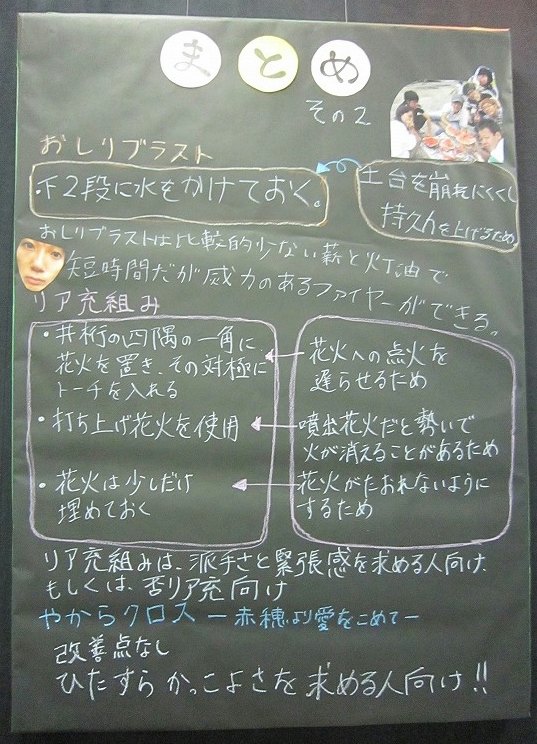 まとめ
その2
おしりブラスト
・下2段に水をかけておく。
土台を崩れにくくし
持久力を上げるため
おしりブラストは比較的少ない薪と灯油で
短時間だが威力のあるファイヤーができる。
リア充組み
・井桁の四隅の一角に
花火を置き、その対極に
トーチを入れる
花火への点火を
遅らせるため
・打ち上げ花火を使用
噴出花火だと勢いで
火が消えることがあるため
・花火は少しだけ
埋めておく
花火がたおれないように
するため
リア充組みは、派手さと緊張感を求める人向け。
もしくは、否リア充向け
やからクロス ー赤穂より愛をこめてー
改善点なし
ひたすら かっこよさを 求める人向け!!